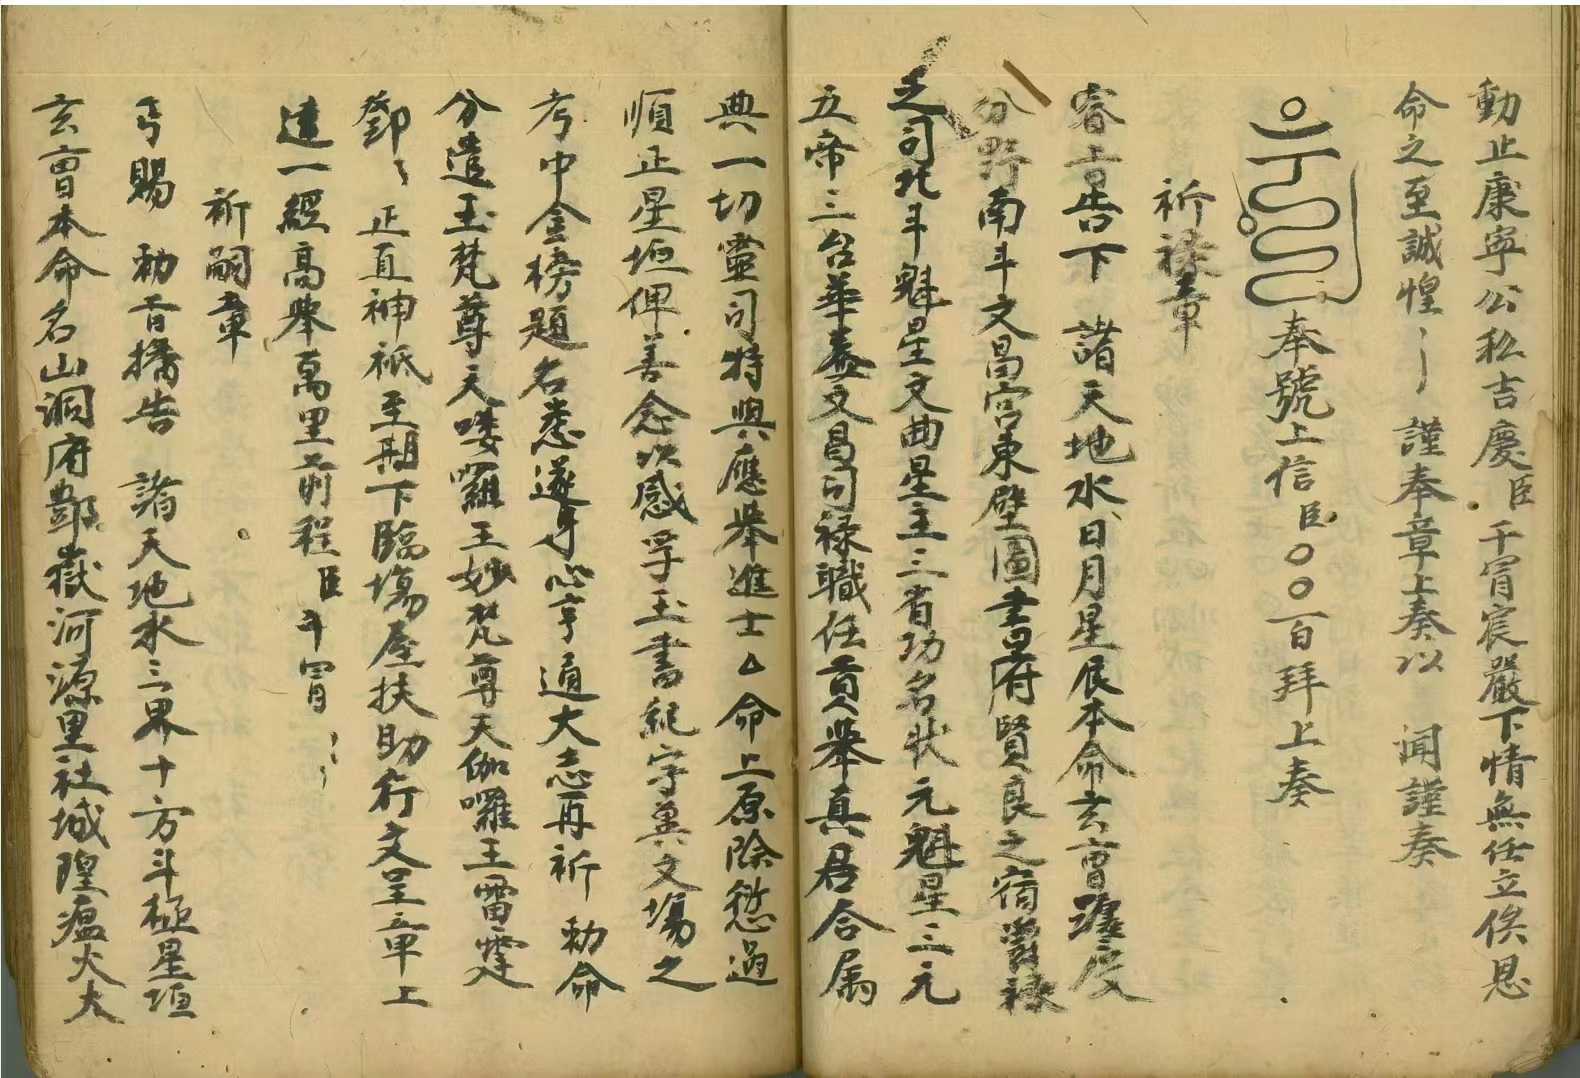 動止康寧公私吉慶臣干冒宸嚴下情無任立俟恩
命之至誠惶〻謹奉章上奏以　聞謹奏
奉號上信臣〇〇百拜上奏
祈祿章
睿旨告下　諸天地水日月星辰本命玄曺躔度
分野南斗文昌宮東壁圖書府賢良之宿爵祿
之司北斗魁星文曲星主三省功名狀元魁星三元
五帝三台華蓋文昌司祿職任貢舉真君合屬
典一切靈司特與應舉進士厶命上原除愆過
順正星垣俾善念以感孚玉書紀字冀文塲之
考中金榜題名悉遂身心亨通大志再祈　勅命
分遣玉梵尊天嘍囉王妙梵尊天伽囉王雷霆
鄧〻正直神祇至期下臨塲屋扶助行文呈五甲上
達一經高舉萬里前程臣干冒〻〻
祈嗣章
丐賜　勅旨播告　諸天地水三界十方斗極星垣
玄曺本命名山洞府酆嶽河源里社城隍瘟火大